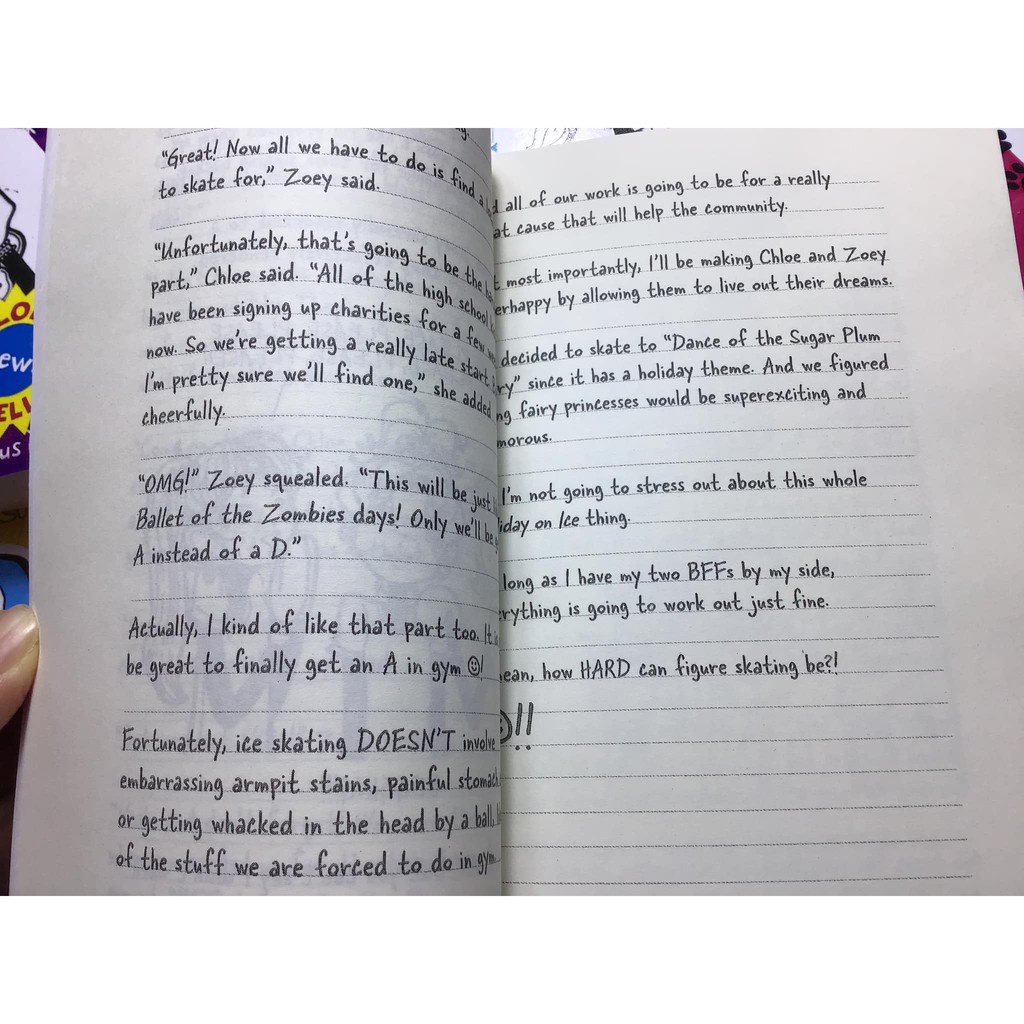 "Great! Now all we have to do is find a
to skate for," Zoey said.
"Unfortunately, that's going to be the
part," Chloe said. "All of the high school
have been signing up charities for a few
now. So we're getting a really late start
I'm pretty sure we'll find one," she added
cheerfully.
"OMG!" Zoey squealed. "This will be just
Ballet of the Zombies days! Only we'll be
A instead of a D."
Actually, I kind of like that part too. It
be great to finally get an A in gym ☺!
Fortunately, ice skating DOESN'T involve
embarrassing armpit stains, painful stomach
or getting whacked in the head by a ball,
of the stuff we are forced to do in gym
all of our work is going to be for a really
cause that will help the community.
most importantly, I'll be making Chloe and Zoey
by allowing them to live out their dreams.
decided to skate to "Dance of the Sugar Plum
since it has a holiday theme. And we figured
fairy princesses would be superexciting and
I'm not going to stress out about this whole
on Ice thing.
long as I have my two BFFs by my side,
is going to work out just fine.
how HARD can figure skating be?!
!!